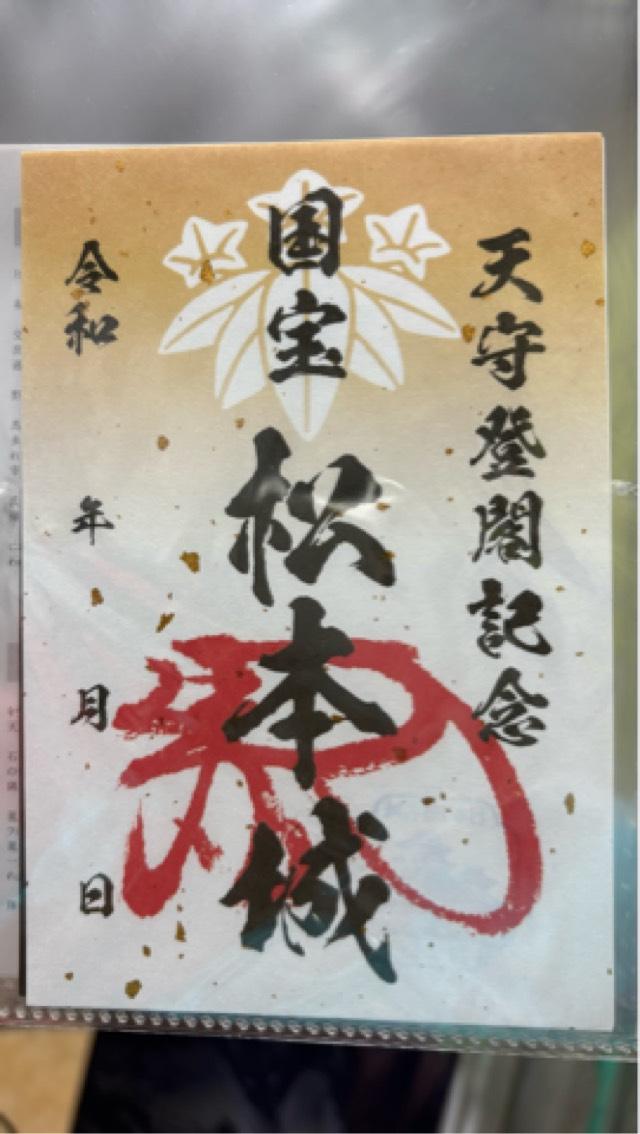 天守登閣記念
国宝 松本城
令和 年 月 日